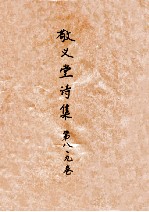 敬义堂诗集 第八九卷